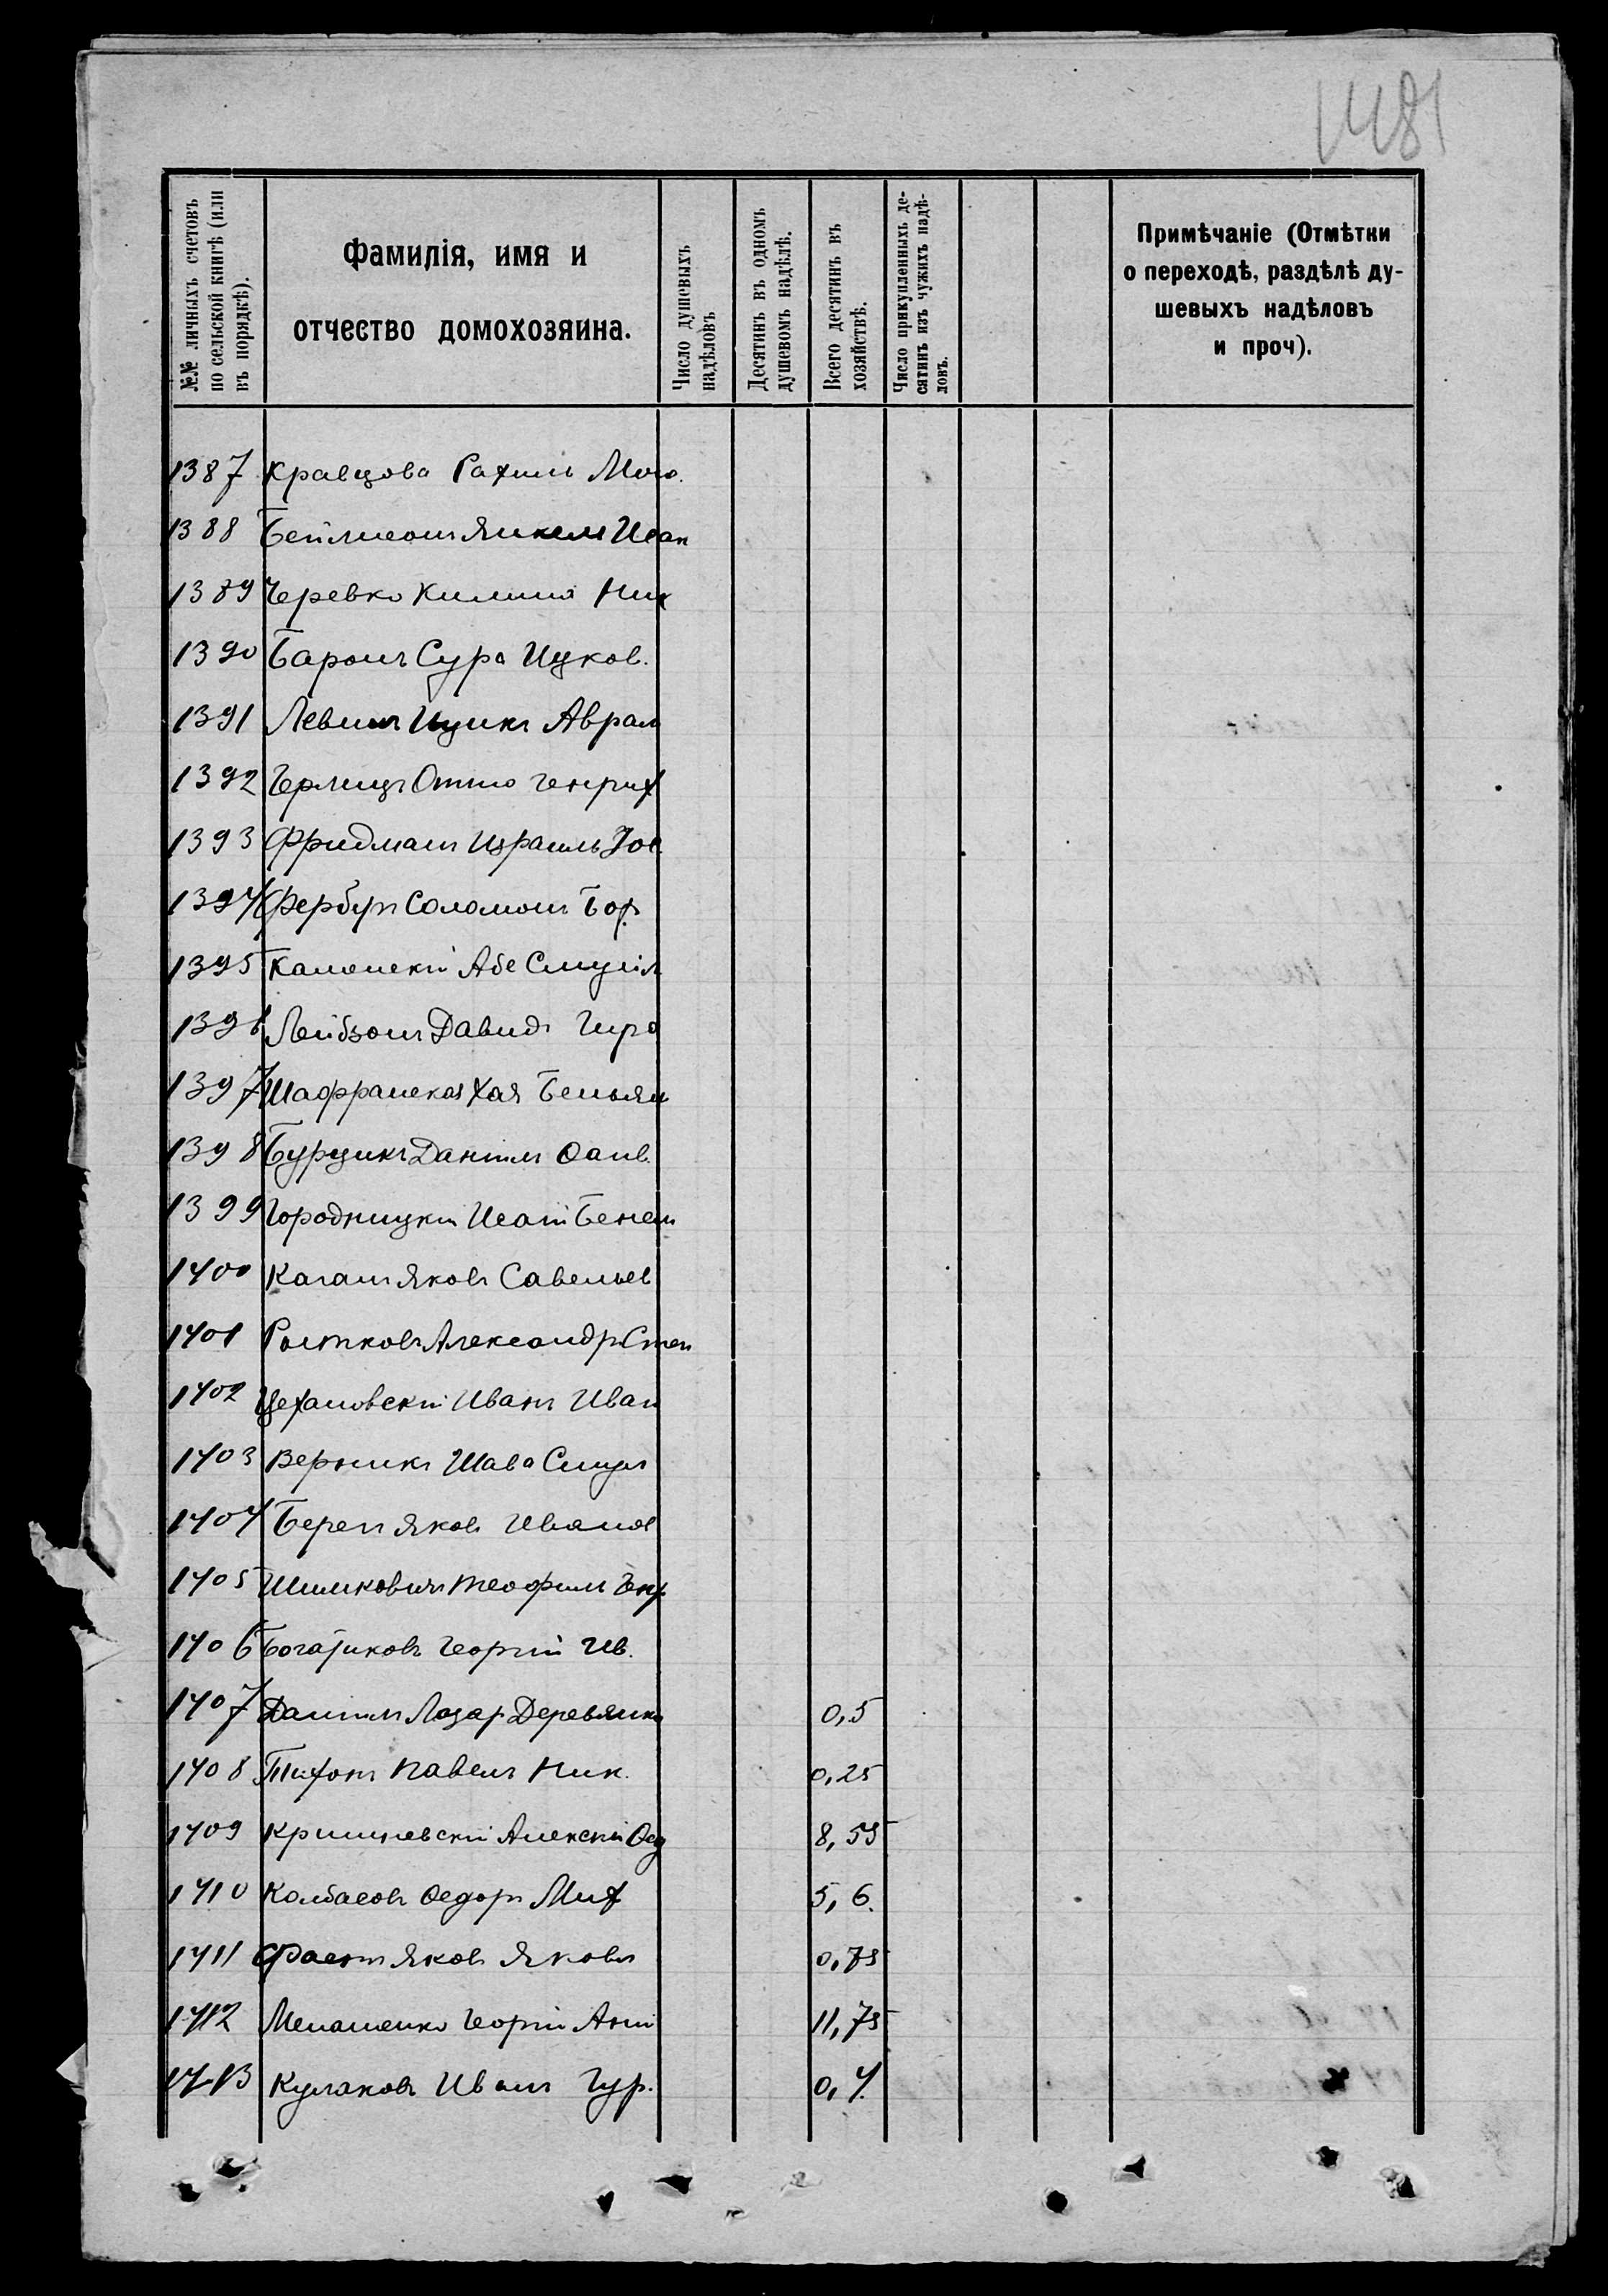 1481
№№ личныхъ счетовъ по сельской книгѣ (или въ порядкѣ).
Фамилія, имя и отчество домохозяина.
Число душевыхъ надѣловъ
Десятинъ въ одномъ душевомъ надѣлѣ.
Всего десятинъ въ хозяйствѣ.
Число прикупленныхъ десятинъ изъ чужихъ надѣловъ.
Примѣчаніе (Отмѣтки о переходѣ, раздѣлѣ душевыхъ надѣловъ и проч).
1387 Кравцова Рахиль
1388 Бейлисонъ Янкель Исаак
1389 Черевко Ник
1390 Баронъ Сура Ицков.
1391 Левинъ Ицикъ Аврам
1392 Герлицъ Отто Генрих
1393 Фридманъ Израиль Іос
1394 Фербуръ Соломонъ Бор.
1395 Каменскій Абе Смуил
1396 Лейбзонъ Давидъ Гирш
1397 Шафранская Хая Беньям
1398 Бурцикъ Даніилъ
1399 Городницкій Исай Бенем
1400 Каганъ Яковъ Савельев
1401 Александръ Степ
1402 Цехановскій Иванъ Иван
1403 Верникъ Шава Смул
1404 Яковъ Иванов
1405 Шимковичъ Теофилъ
1406 Богатиковъ Георгій Ив.
1407 Даніилъ Лазар Деревянко 0,5
1408 Тихонъ Павелъ Ник. 0,25
1409 Кришневскій Алексѣй 8,55
1410 Колбасовъ Ѳедоръ Мих 5,6.
1411 Фастъ Яковъ Яковл 0,75
1412 Менашенко Георгій Ант 11,75
1413 Кулаковъ Иванъ Гур. 0,4